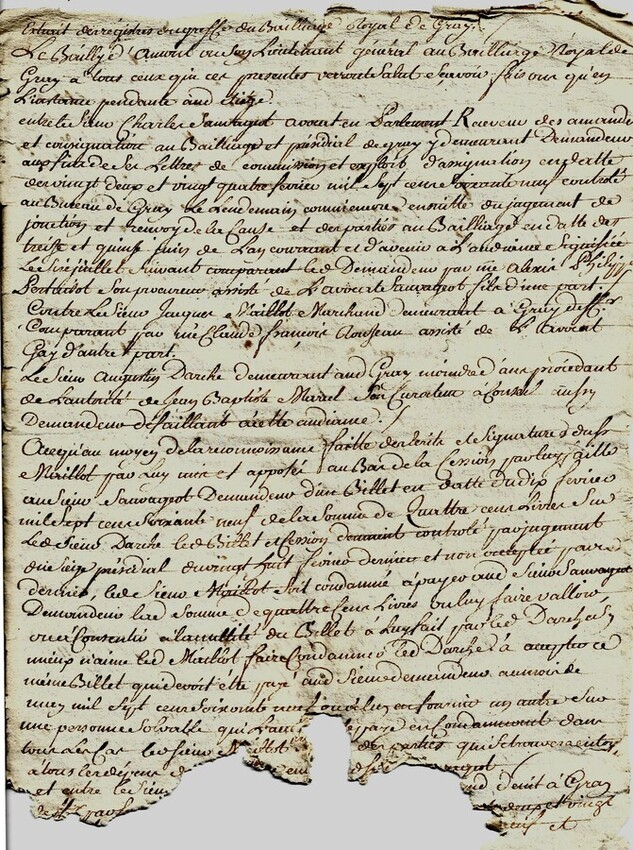 Extrait des registres du greffe du Bailliage Royal de Gray.
Le Bailly d'Amont ou son Lieutenant général au Bailliage Royal de
Gray a tous ceux qui ces presentes verront Salut Sçavoir faisons qu'en
L'instance pendante aud Siége.
entre le Sieur Charle Sauvagot avocat en Parlement Receveur des amandes
et consignations au Bailliage et présidial de gray y demeurant Demandeur
aux fins de ses Lettres de commission et exploit d'assignation en datte
des vingt deux et vingt quatre fevrier mil sept cent soixante neuf controlé
au Bureau de Gray le Lendemain ensuitte du jugement de
jonction et renvoy de la Cause et des parties au Bailliage en datte des
treize et quinze juin de L'an courant et d'avenir à L'audiance Signifiée
Le Six juillet Suivant comparant led Demandeur par me Alexis
son procureur assisté de L'avocat Sauvagot fils d'une part.
Contre Le Sieur Jacques Maillot Marchand demeurant à Gray deffr
Comparant par me Claude françois Rousseau assisté de L avocat
Gay d'autre part.
Le Sieur Augustin Darche demeurant aud Gray mineur d'ans procédant
de L'autorité de Jean Baptiste Marcel Son Curateur à Conseil aussy
Demandeur défaillant à cette audiance.
Ace qu'au moyen de la reconnoissance faitte des Ecrits et Signatures dud Sr
Maillot par Luy mis et apposé au Bas de la Cession par luy faitte
au Sieur Sauvagot Demandeur d'un Billet en datte du dix fevrier
mil sept cent soixante neuf de la Somme de Quattre cent Livres Sur
Led Sieur Darche led Billet et Cession deument controlé par jugement
du Siége présidial du vingt huit fevrier dernier et non accepté par ce
dernier, led Sieur Maillot soit condamné à payer aud Sieur Sauvagot
Demandeur lad Somme de quattre cent Livres
Consentir à la nullité du Billet à Luy fait par led Darche Si
mieux n'aime led Maillot faire Condamner led Darche à accepter ce
même Billet qui devoit été payé aud Sieur demandeur au mois de
may mil sept cent soixante neuf ou à luy en fournir un autre Sur
une personne Solvable qui L'au payé en Condamnant dans
tous les Cas le Sieur M des parties qui Se trouvera en tort
à tous les dépens d
et entre le Sieu à Gray
et vingt
neuf et